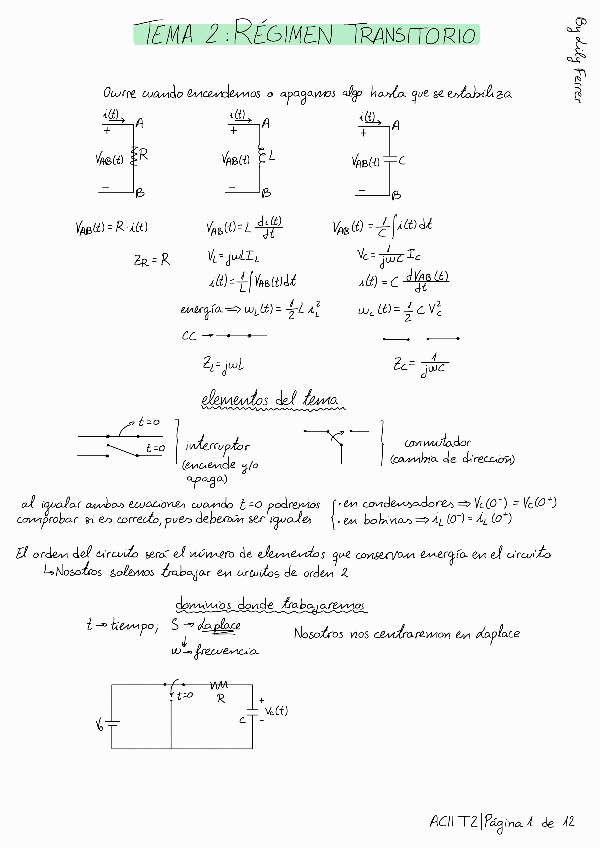 TEMA 2: RÉGIMEN TRANSITORIO
By Lily Ferrer
Ocurre cuando encendemos o apagamos algo hasta que se estabiliza
i(t) A i(t) A i(t) A
+ + +
V_AB(t) R V_AB(t) L V_AB(t) C
- B - B - B
V_AB(t) = R · i(t) V_AB(t) = L di(t)/dt V_AB(t) = 1/C ∫ i(t) dt
Z_R = R V_L = jωL I_L V_C = 1/jωC I_C
i(t) = 1/L ∫ V_AB(t) dt i(t) = C dV_AB(t)/dt
energía ⇒ w_L(t) = 1/2 L i_L^2 w_C(t) = 1/2 C V_C^2
CC →
Z_L = jωL Z_C = 1/jωC
elementos del tema
t=0
t=0
interruptor
(enciende y/o
apaga)
conmutador
(cambia de dirección)
al igualar ambas ecuaciones cuando t=0 podremos
comprobar si es correcto, pues deberán ser iguales
· en condensadores ⇒ V_C(0^-) = V_C(0^+)
· en bobinas ⇒ i_L(0^-) = i_L(0^+)
El orden del circuito será el número de elementos que conservan energía en el circuito
↳ Nosotros solemos trabajar en circuitos de orden 2
dominios donde trabajaremos
t → tiempo; S → Laplace
ω → frecuencia
Nosotros nos centraremos en Laplace
t=0 R +
V_C(t)
C -
ACII T2 | Página 1 de 12